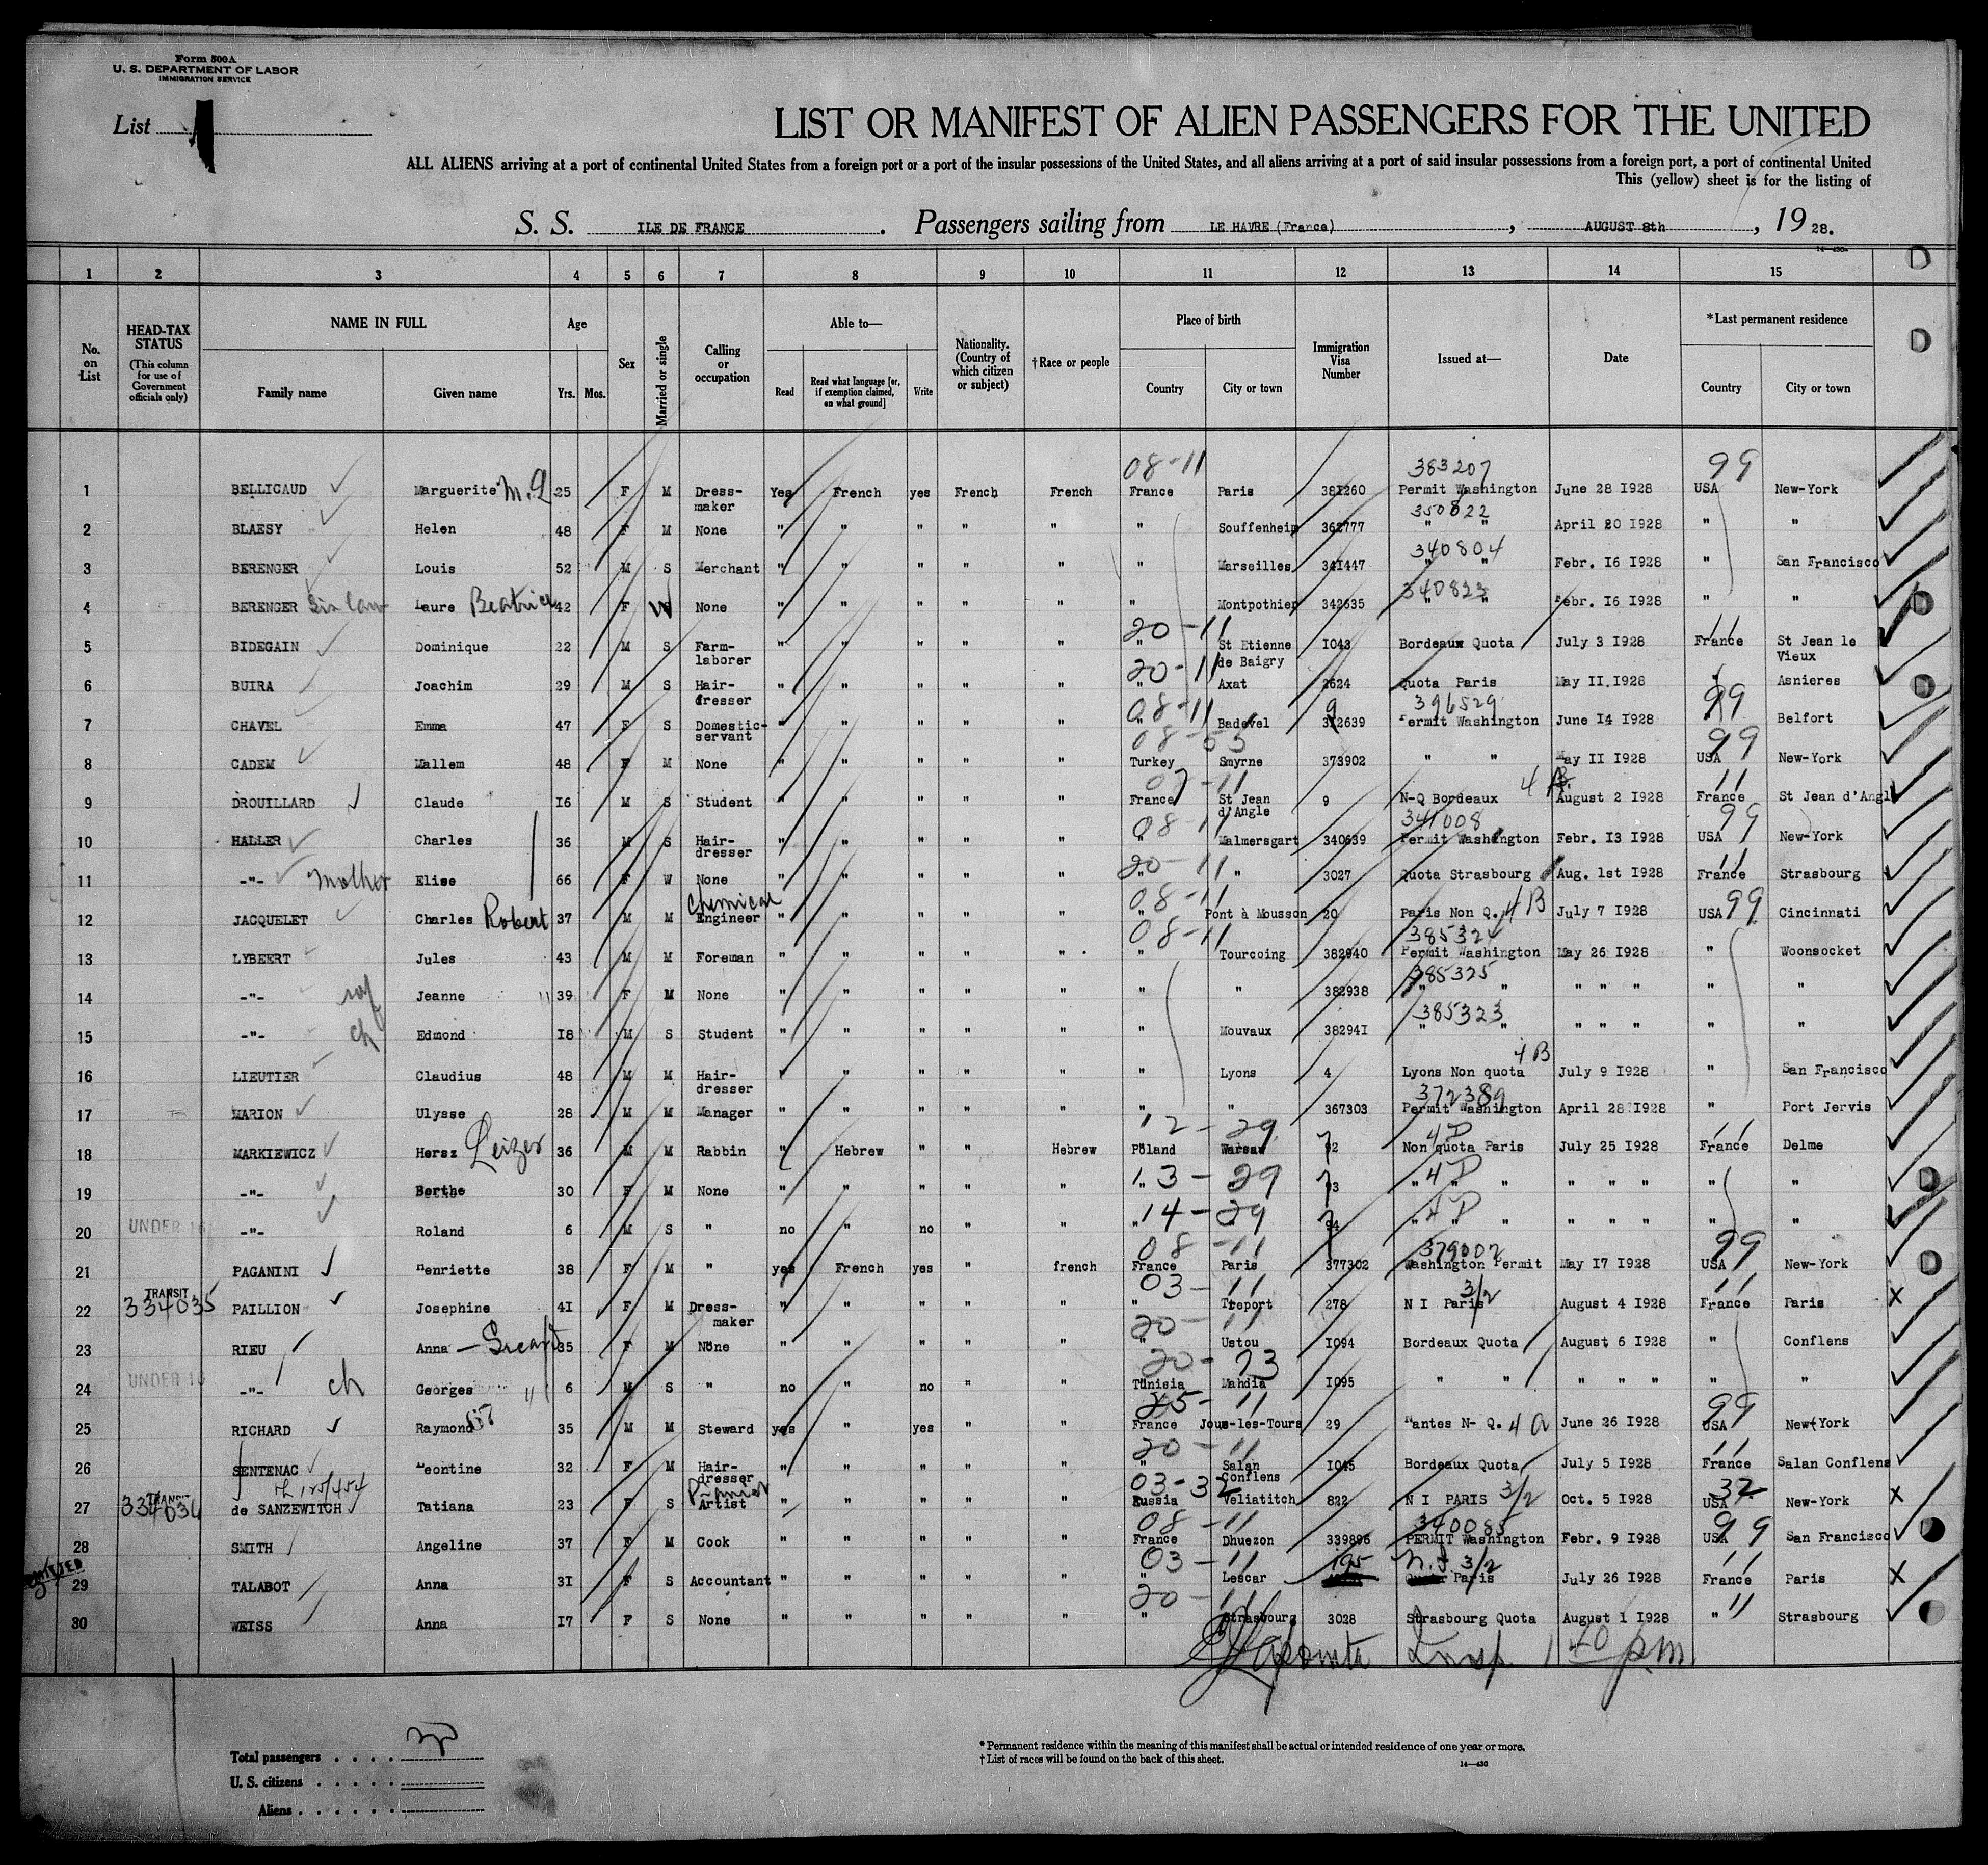 Form 500A
U. S. DEPARTMENT OF LABOR
IMMIGRATION SERVICE
List
LIST OR MANIFEST OF ALIEN PASSENGERS FOR THE UNITED
ALL ALIENS arriving at a port of continental United States from a foreign port or a port of the insular possessions of the United States, and all aliens arriving at a port of said insular possessions from a foreign port, a port of continental United
This (yellow) sheet is for the listing of
S. S. ILE DE FRANCE . Passengers sailing from LE HAVRE (France) , AUGUST 8th , 19 28.
1 2 3 4 5 6 7 8 9 10 11 12 13 14 15
No. on List
HEAD-TAX STATUS (This column for use of Government officials only)
NAME IN FULL Family name Given name
Age Yrs. Mos.
Sex
Married or single
Calling or occupation
Able to— Read Read what language [or, if exemption claimed, on what ground] Write
Nationality. (Country of which citizen or subject)
†Race or people
Place of birth Country City or town
Immigration Visa Number
Issued at—
Date
*Last permanent residence Country City or town
08-11 383207 99
1 BELLICAUD Marguerite 25 F M Dress-maker Yes French yes French French France Paris 381260 Permit Washington June 28 I928 USA New-York
350822
2 BLAESY Helen 48 F M None " " " " " " Souffenheim 362777 " " April 20 I928 " "
340804
3 BERENGER Louis 52 M S Merchant " " " " " " Marseilles 34I447 " " Febr. I6 I928 " San Francisco
340823
4 BERENGER Sis law Laure Beatrice 42 F W None " " " " " " Montpothier 342635 " " Febr. I6 I928 " "
20-11 11
5 BIDEGAIN Dominique 22 M S Farm-laborer " " " " " " St Etienne de Baigry I043 Bordeaux Quota July 3 I928 France St Jean le Vieux
20-11
6 BUIRA Joachim 29 M S Hair-dresser " " " " " " Axat 2624 Quota Paris May II.I928 " Asnieres
08-11 396529 99
7 CHAVEL Emma 47 F S Domestic-servant " " " " " " Badevel 3I2639 Permit Washington June I4 I928 Belfort
08-53 99
8 CADEM Mallem 48 F M None " " " " " Turkey Smyrne 373902 " " May II I928 USA New-York
07-11 4 B. 11
9 DROUILLARD Claude I6 M S Student " " " " " France St Jean d'Angle 9 N-Q Bordeaux August 2 I928 France St Jean d'Angl
08-11 341008 99
10 HALLER Charles 36 M S Hair-dresser " " " " " " Malmersgart 340639 Permit Washington Febr. I3 I928 USA New-York
20-11 11
11 -"- Mother Elise 66 F W None " " " " " " " 3027 Quota Strasbourg Aug. 1st I928 France Strasbourg
08-11 4B 99
12 JACQUELET Charles Robert 37 M M Chemical Engineer " " " " " " Pont à Mousson 20 Paris Non Q. July 7 I928 USA Cincinnati
08-11 385324
13 LYBEERT Jules 43 M M Foreman " " " " " " Tourcoing 382940 Permit Washington May 26 I928 " Woonsocket
385325
14 -"- wf Jeanne 39 F M None " " " " " " " 382938 " " " " " " "
385323
15 -"- ch Edmond I8 M S Student " " " " " " Mouvaux 38294I " " " " " " "
4B
16 LIEUTIER Claudius 48 M M Hair-dresser " " " " " " Lyons 4 Lyons Non quota July 9 I928 " San Francisco
372389
17 MARION Ulysse 28 M M Manager " " " " " " " 367303 Permit Washington April 28 I928 " Port Jervis
12-29 4D 11
18 MARKIEWICZ Hersz Leizer 36 M M Rabbin " Hebrew " " Hebrew Poland Warsaw 92 Non quota Paris July 25 I928 France Delme
13-29 4D
19 -"- Berthe 30 F M None " " " " " " 93 " " " " " " " "
14-29 4D
20 UNDER 16 -"- Roland 6 M S " no " no " " " 94 " " " " " " " "
08-11 379007 99
21 PAGANINI Henriette 38 F M " yes French yes " french France Paris 377302 Washington Permit May I7 I928 USA New-York
03-11 3/2 11
22 TRANSIT 334035 PAILLION Josephine 4I F M Dress-maker " " " " " " Treport 278 N I Paris August 4 I928 France Paris
20-11
23 RIEU Anna 35 F M None " " " " " " Ustou I094 Bordeaux Quota August 6 I928 " Conflens
20-73
24 UNDER 16 -"- ch Georges 6 M S " no " no " " Tunisia Mahdia I095 " " " " " " "
25-11 99
25 RICHARD Raymond 35 M M Steward yes " yes " " France Joue-les-Tours 29 Nantes N- Q. 4 a June 26 I928 USA New-York
20-11 11
26 SENTENAC Leontine 32 F M Hair-dresser " " " " " " Salan Conflens I045 Bordeaux Quota July 5 I928 France Salan Conflens
03-32 3/2 32
27 TRANSIT 334034 de SANZEWITCH Tatiana 23 F S Artist " " " " " Russia Veliatitch 822 N I PARIS Oct. 5 I928 USA New-York
08-11 340085 99
28 SMITH Angeline 37 F M Cook " " " " " France Dhuezon 339896 PERMIT Washington Febr. 9 I928 USA San Francisco
03-11 195 N.I 3/2 11
29 TALABOT Anna 3I F S Accountant " " " " " " Lescar Paris July 26 I928 France Paris
20-11 11
30 WEISS Anna I7 F S None " " " " " " Strasbourg 3028 Strasbourg Quota August 1 I928 " Strasbourg
Insp 1 40 pm
Total passengers . . . .
U. S. citizens . . . . .
Aliens . . . . . .
* Permanent residence within the meaning of this manifest shall be actual or intended residence of one year or more.
† List of races will be found on the back of this sheet.
14—430